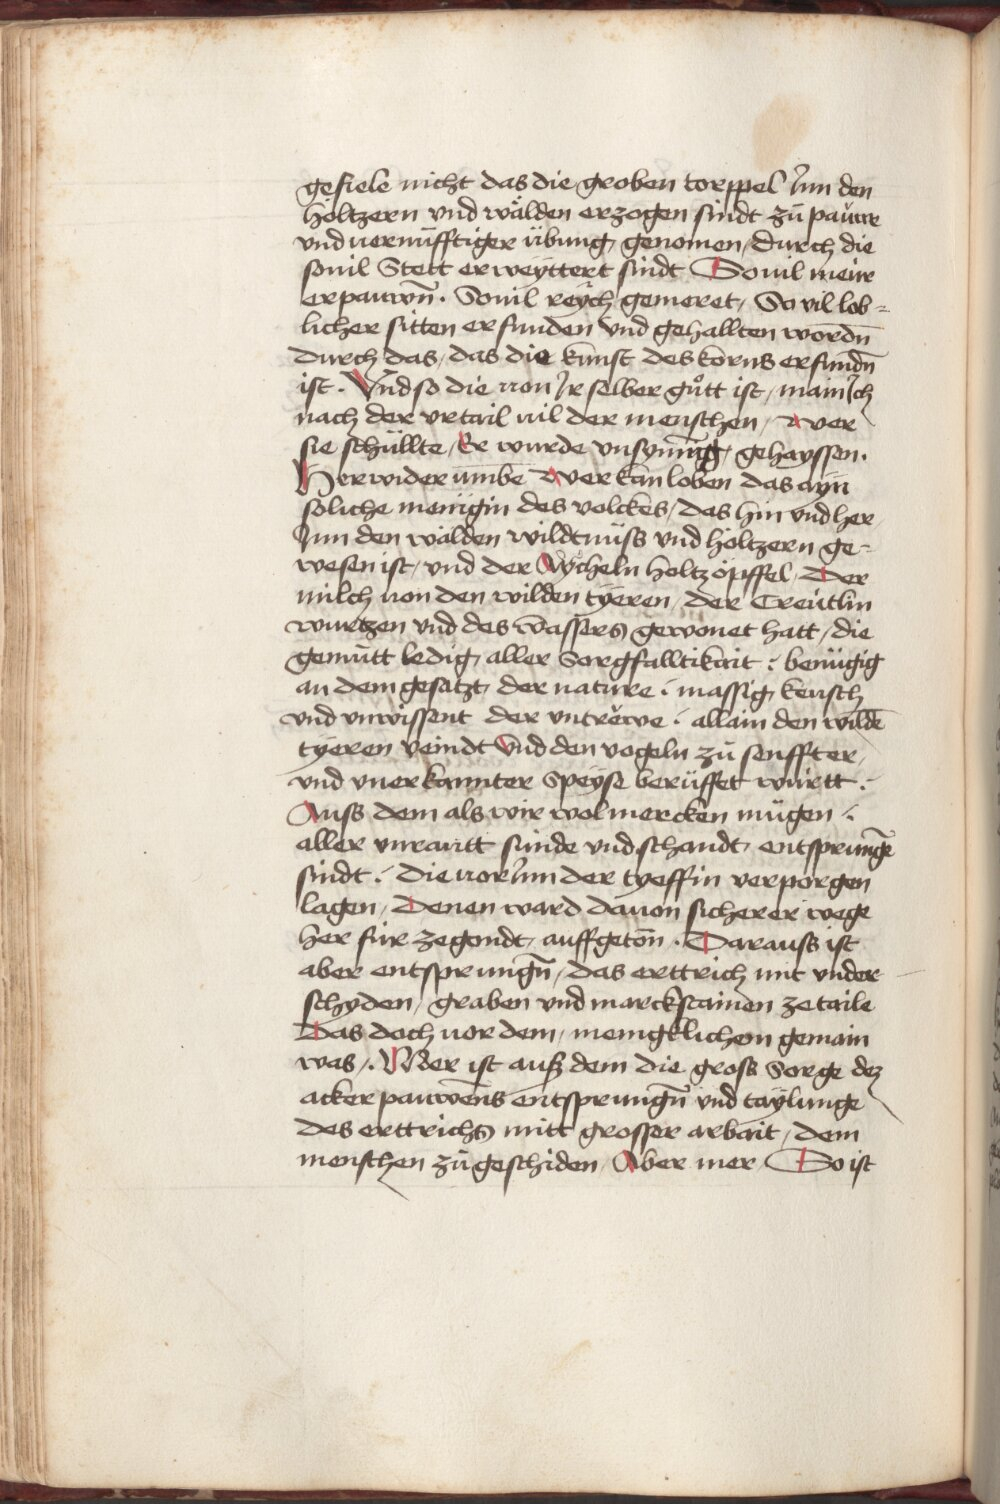 gefiele nicht das die groben torppel Jnn den
höltzern vnd wälden erzogen sindt zů paurre
vnd uernufftiger übung genomen / durch die
souil Stett erweÿttert sindt Souil meür
erpauwn̄. Souil reÿch gemeret / So vil lob=
licher sitten erfunden vnd gehallten wordn̄
durch das / das die kunst des korns erfundn̄
ist. Vnd so die uon Jr selber gůtt ist / main Jch
nach der vrtail uil der menschen / wer
sie schüllte / Er wurde vnsynnig gehayssen.
Herwiderumbe wer kan loben das ayn
soliche menigin des volckes / das hin vnd her
Jnn den wälden wildtnüss vnd höltzern ge=
wesen ist / vnd der Aÿcheln holtzöpffel / Der
milch uon den wilden tÿeren / der Creütlin
wurtzen vnd des wassers gewonet hatt / die
gemütt ledig aller Sorgfalltikait : benügig
an dem gesatzt der nature : massig keusch
vnd vnwissent der vntrëwe : allain den wildē
tÿeren veindt Vnd den vogeln zů senffter
vnd vnerkannter Speÿse berüffet württ :
Auss dem als wir wol mercken mügen :
aller vnrautt sünde vnd schandt entsprunge
sindt : die uor Jnn der tyeffin verporgen
lagen / Denen ward dauon sicherer wege
her für zegondt auffgeton̄. Darauss ist
aber entsprungn̄ / das erttrich mit vnder
schyden / graben vnd marckstainen ze taile
Das doch uor dem / menigklichem gemain
was /. Mer ist auß dem die gross Sorge dez
acker pauwens entsprungn̄ vnd taÿlunge
des erttrichs mitt grosser arbait / dem
menschen zůgeschiden / Aber mer So ist